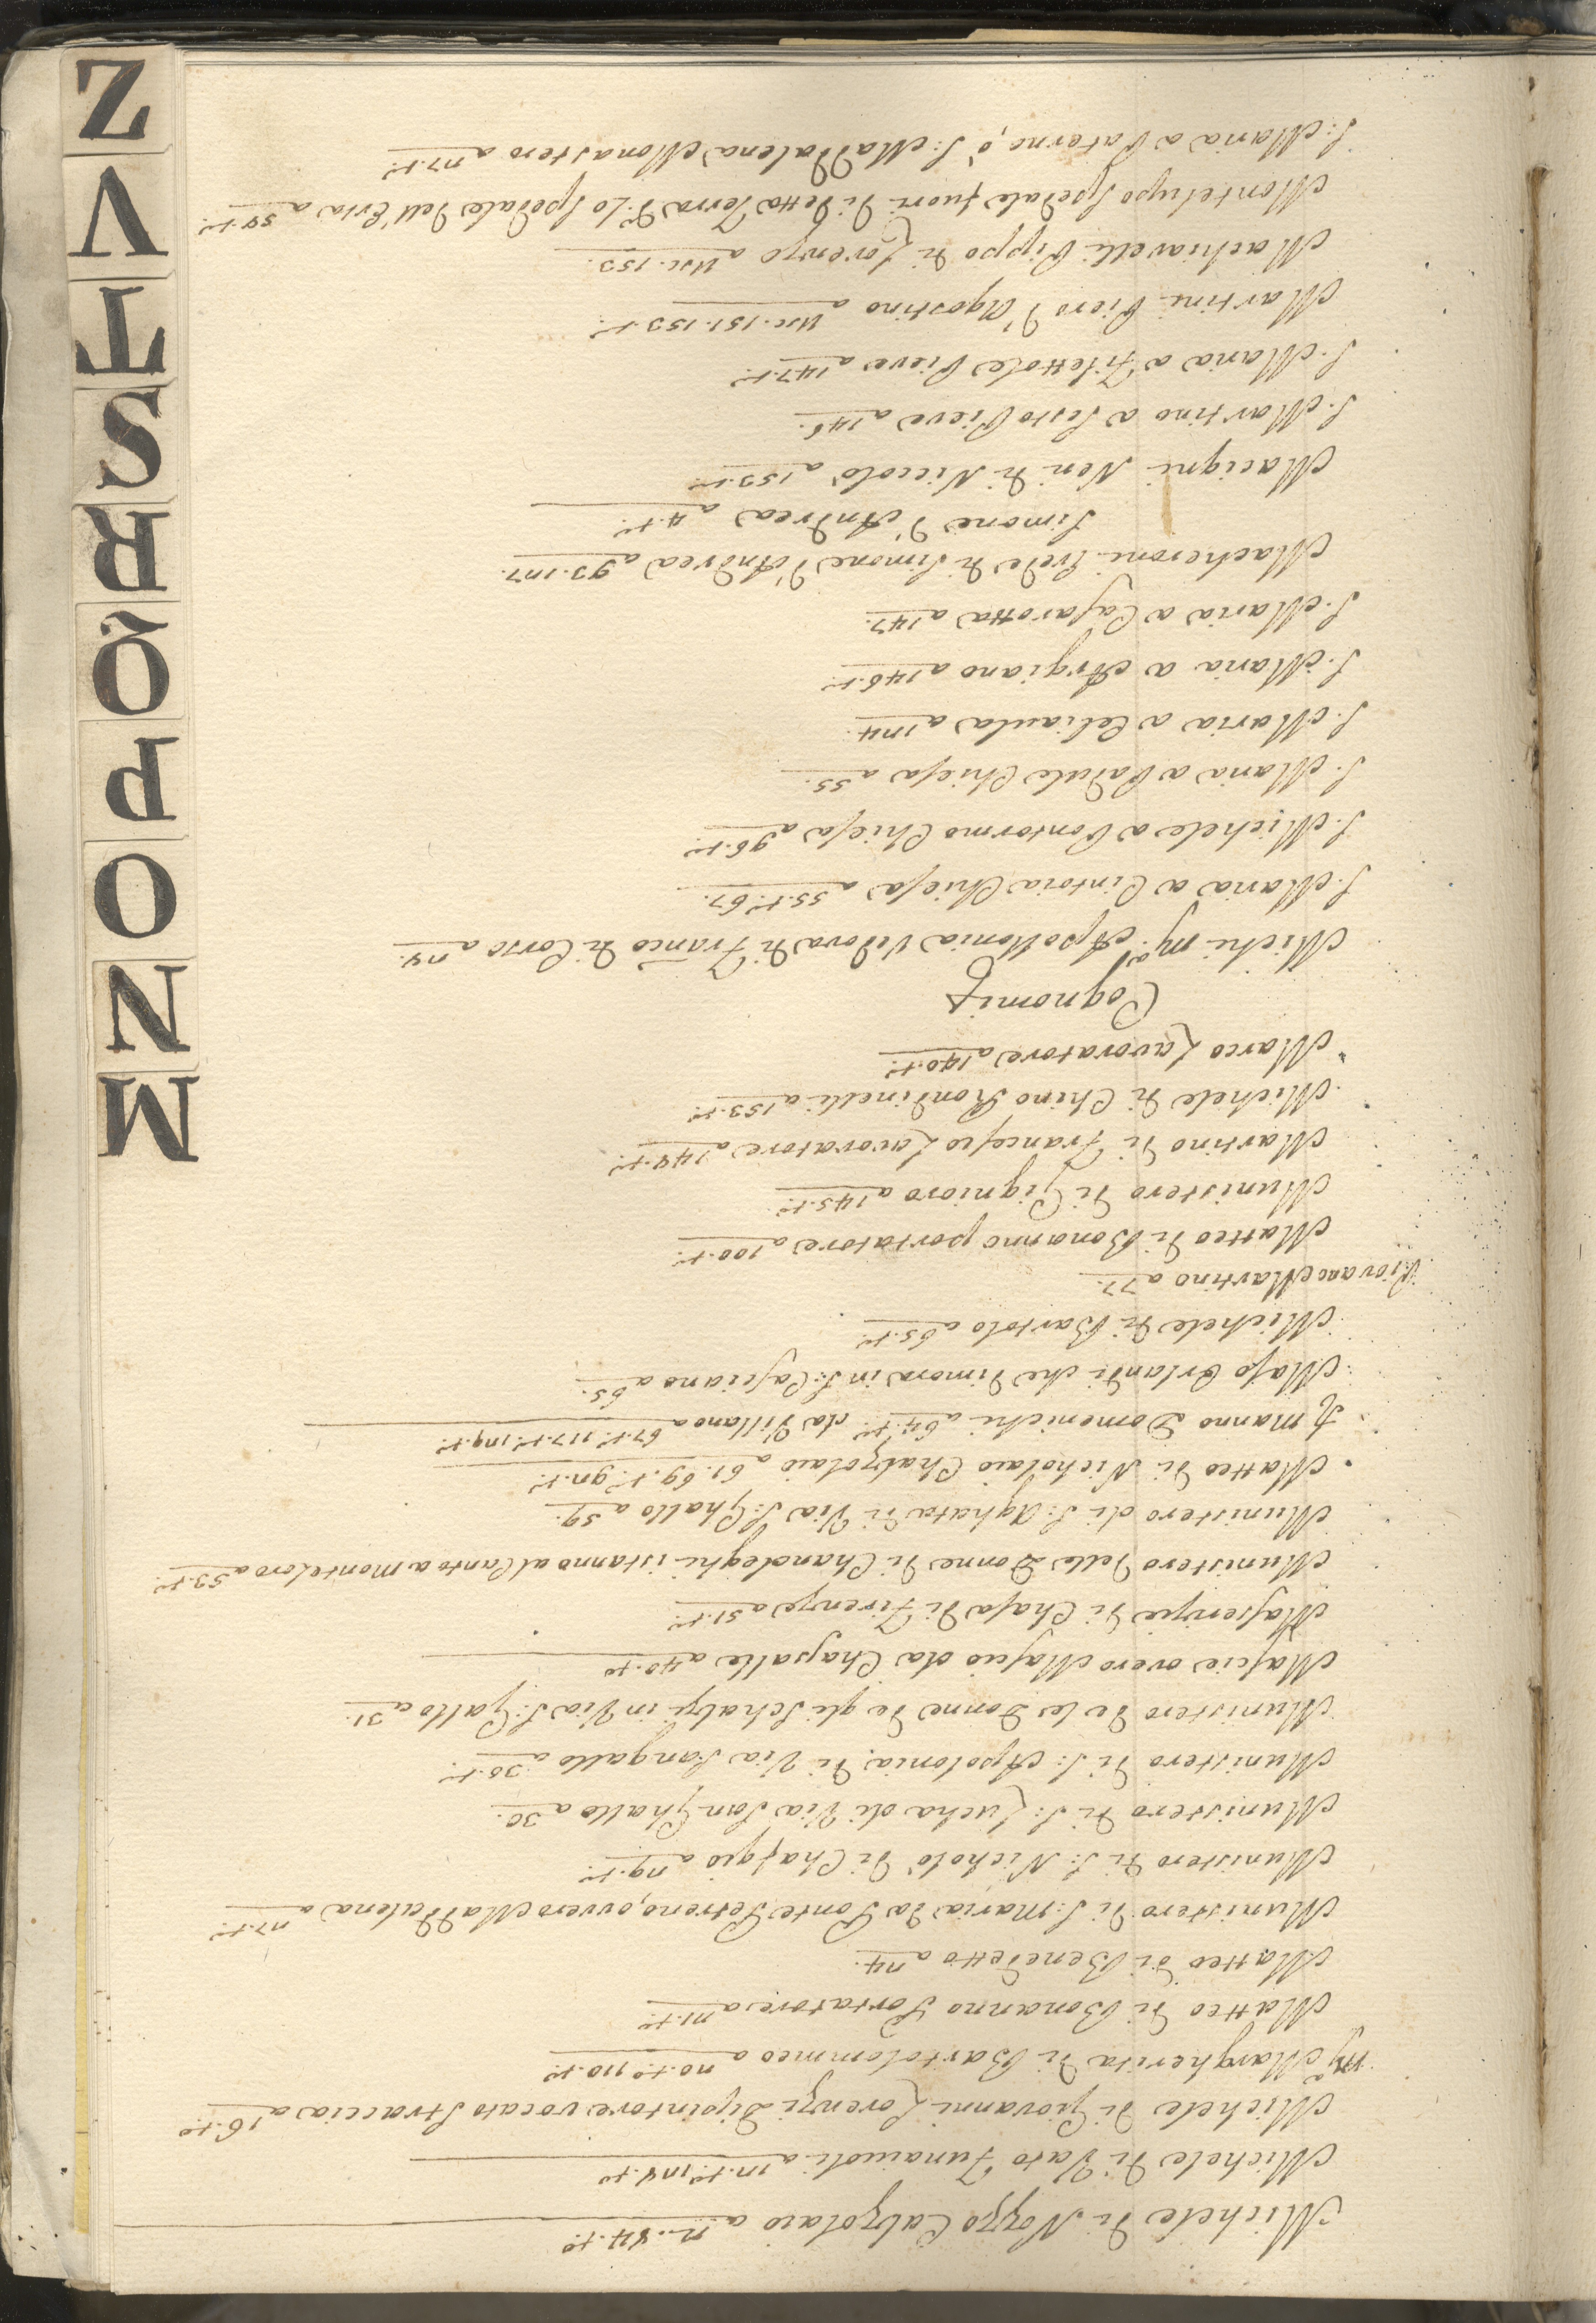 Michele di Nozzo Calzolaio a 2. 84. to
Michele di Vaso Funaiuoli a
Michele di Giovanni Lorenzi Dipintore vocato Straccia a 16. to
Mª Margherita di Bartolommeo a 20. to 110. to
Matteo di Bonanno Portatore a 21. to
Matteo di Benedetto a 24.
Munistero di S: Maria da Ponte Petreno, ovvero Maddalena a 27. to
Munistero di S: Nicholò di Chafgio a 29. to
Munistero di S: Lucha di Via San Ghallo a 30.
Munistero di S: Apolonia di Via Sangallo a 30. to
Munistero de le Donne de gli Schalzi in Via S: Gallo a 31.
Mascio overo Mascio da Chapalle a 40. to
Masenzie di Chasa di Firenze a 51. to
Munistero delle Donne di Chandeghi istanno al Canto a Monteloro a 53. to
Munistero di S: Aghata di Via S: Ghallo a 59.
Matteo di Nicholaio Chalzolaio a 61. 69. to 92. to
Manno Domenichi a 64. to da Villano a 67. to 117. to 129. to
Maso Orlandi che dimora in S: Casciano a 65.
Michele di Bartolo a 65. to
Piovano Martino a 77.
Matteo di Bonanno portatore a 100. to
Munistero di Cignioro a 145. to
Martino di Francesco Lavoratore a 148. to
Michele di Chino Rondinelli a 153. to
Marco Lavoratore a 140. to
Cognomi
Michi Mª Apollonia Vedova di Franco di Corso a 24.
S. Maria a Cintoia Chiesa a 55. to 67.
S. Michele a Pontormo Chiesa a 96. to
S. Maria a Padule Chiesa a 55.
S. Maria a Celiaula a 124.
S. Maria a Argiano a 146. to
S. Maria a Casarotta a 147.
Macheroni Erede di Simone d'Andrea a 93. 127.
Simone d'Andrea a 4. to
Macigni Neri di Niccolò a 153. to
S. Martino a Sesto Pieve a 146.
S. Maria a Filettole Pieve a 147. to
Martini Piero d'Agostino a Usc. 151. 153. to
Machiavelli Pippo di Lorenzo a Usc. 153.
Montelupo Spedale fuori di detta Terra Vi. Lo Spedale dell'Erta a 58. to
S: Maria a Paterno, ò S: Maddalena Monastero a 27. to
M
N
O
P
Q
R
S
T
V
Z